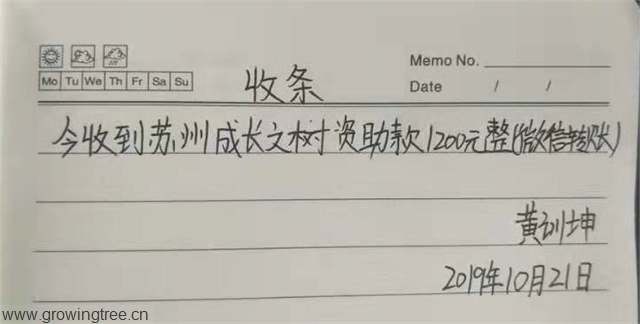 Memo No.
Mo Tu We Th Fr Sa Su
Date / /
收条
今收到苏州成长文树资助款1200元整(微信转账)
黄训坤
2019年10月21日
www.growingtree.cn